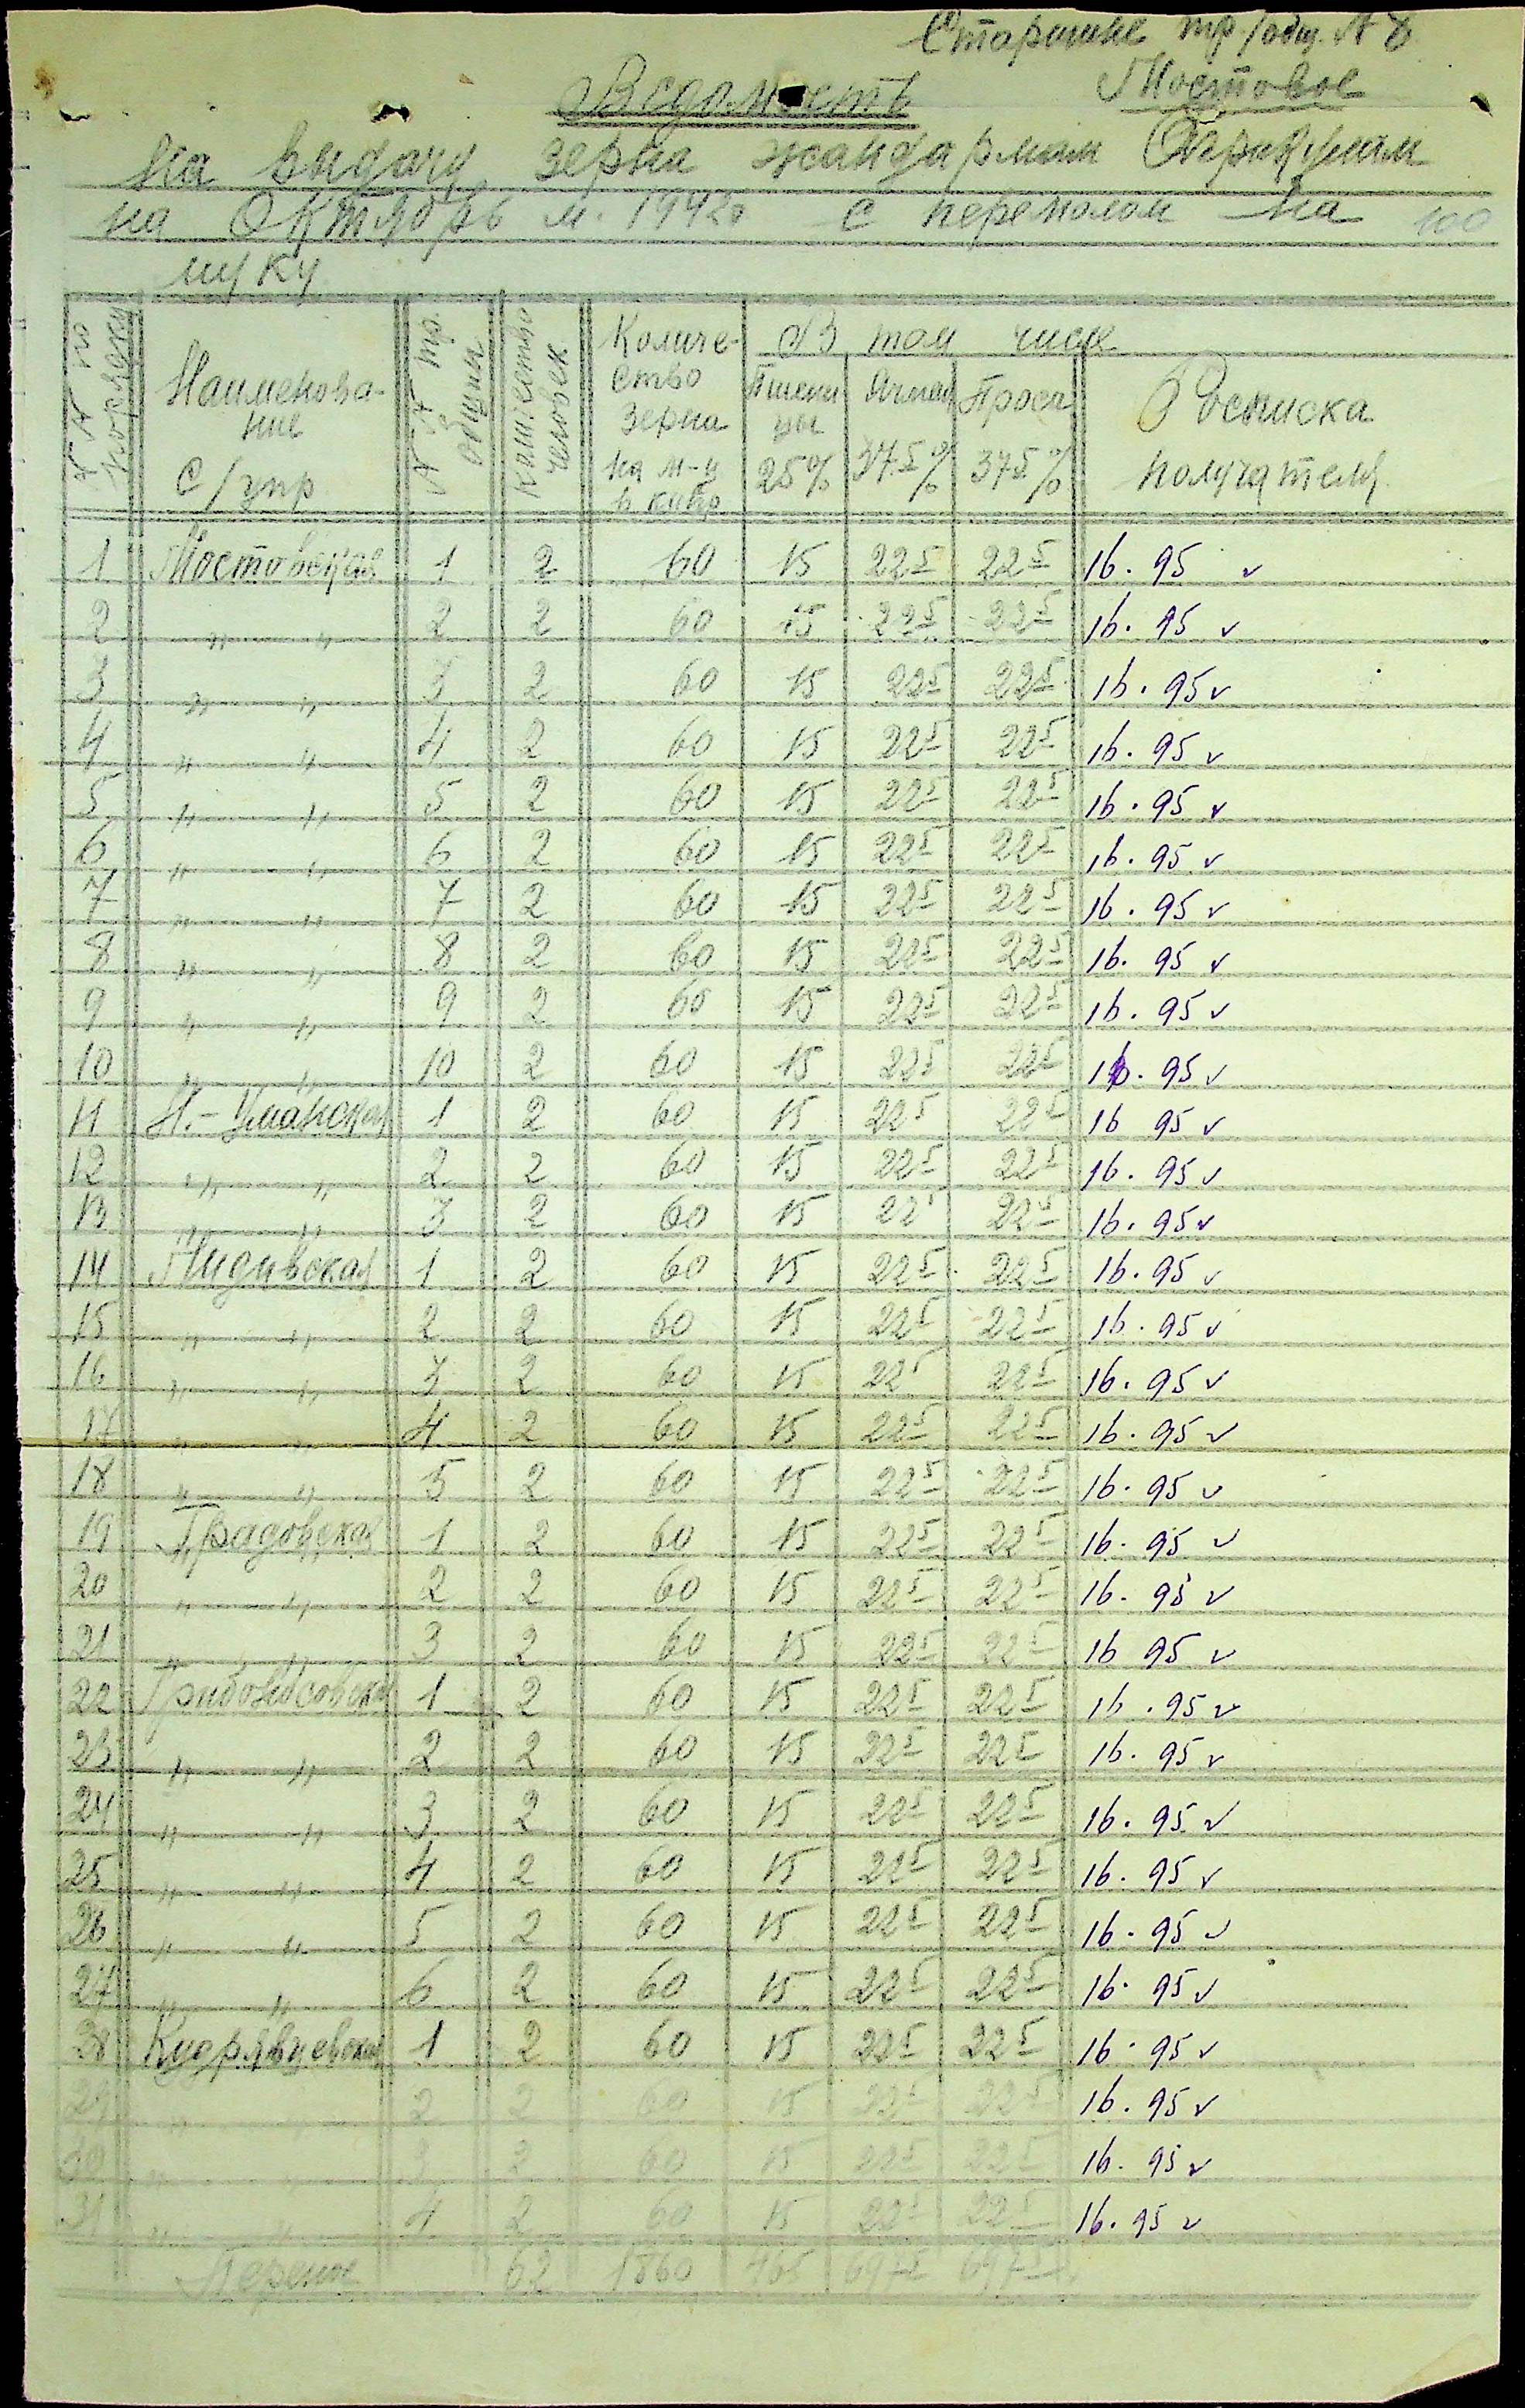 Старшине тр/общ. № 8
Мостовое
Ведомость
на выдачу зерна жандармам
на Октябрь м. 1942 с перемолом на 100
муку
№ № по порядку
Наименование С/упр
№ № тр. общин
Количество человек
Количество зерна на м-ц в килгр
В том числе
Пшеницы 25%
Ячмен 37.5%
Проса 37.5%
Росписка получателя
1 Мостовская 1 2 60 15 22 5 22 5 16. 95 v
2 „ „ 2 2 60 15 22 5 22 5 16. 95 v
3 „ „ 3 2 60 15 22 5 22 5 16. 95 v
4 „ „ 4 2 60 15 22 5 22 5 16. 95 v
5 „ „ 5 2 60 15 22 5 22 5 16. 95 v
6 „ „ 6 2 60 15 22 5 22 5 16. 95 v
7 „ „ 7 2 60 15 22 5 22 5 16. 95 v
8 „ „ 8 2 60 15 22 5 22 5 16. 95 v
9 „ „ 9 2 60 15 22 5 22 5 16. 95 v
10 „ „ 10 2 60 15 22 5 22 5 16. 95 v
11 Н.-Уманская 1 2 60 15 22 5 22 5 16 95 v
12 „ „ 2 2 60 15 22 5 22 5 16. 95 v
13 „ „ 3 2 60 15 22 5 22 5 16. 95 v
14 1 2 60 15 22 5 22 5 16. 95 v
15 „ „ 2 2 60 15 22 5 22 5 16. 95 v
16 „ „ 3 2 60 15 22 5 22 5 16. 95 v
17 „ „ 4 2 60 15 22 5 22 5 16. 95 v
18 „ „ 5 2 60 15 22 5 22 5 16. 95 v
19 Градовская 1 2 60 15 22 5 22 5 16. 95 v
20 „ „ 2 2 60 15 22 5 22 5 16. 95 v
21 „ „ 3 2 60 15 22 5 22 5 16 95 v
22 1 2 60 15 22 5 22 5 16. 95 v
23 „ „ 2 2 60 15 22 5 22 5 16. 95 v
24 „ „ 3 2 60 15 22 5 22 5 16. 95 v
25 „ „ 4 2 60 15 22 5 22 5 16. 95 v
26 „ „ 5 2 60 15 22 5 22 5 16. 95 v
27 „ „ 6 2 60 15 22 5 22 5 16. 95 v
28 Кудрявцевская 1 2 60 15 22 5 22 5 16. 95 v
29 „ 2 2 60 15 22 5 22 5 16. 95 v
30 „ „ 3 2 60 15 22 5 22 5 16. 95 v
31 „ „ 4 2 60 15 22 5 22 5 16. 95 v
Перенос 62 1860 465 697 5 697 5